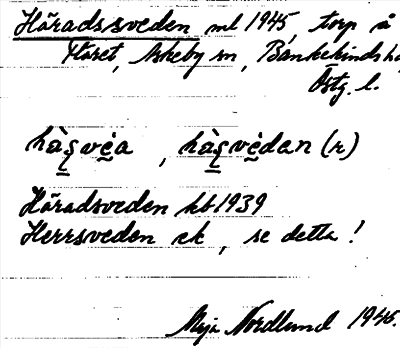 Häradssveden ml 1945, torp å
Fläret, Askeby sn, Bankekinds hd
Östg. l.
hà̤ʂve̤a , hà̤ʂvèdan (r)
Häradsveden hb 1939
Herrsveden ek, se detta !
Nordlund 1946.